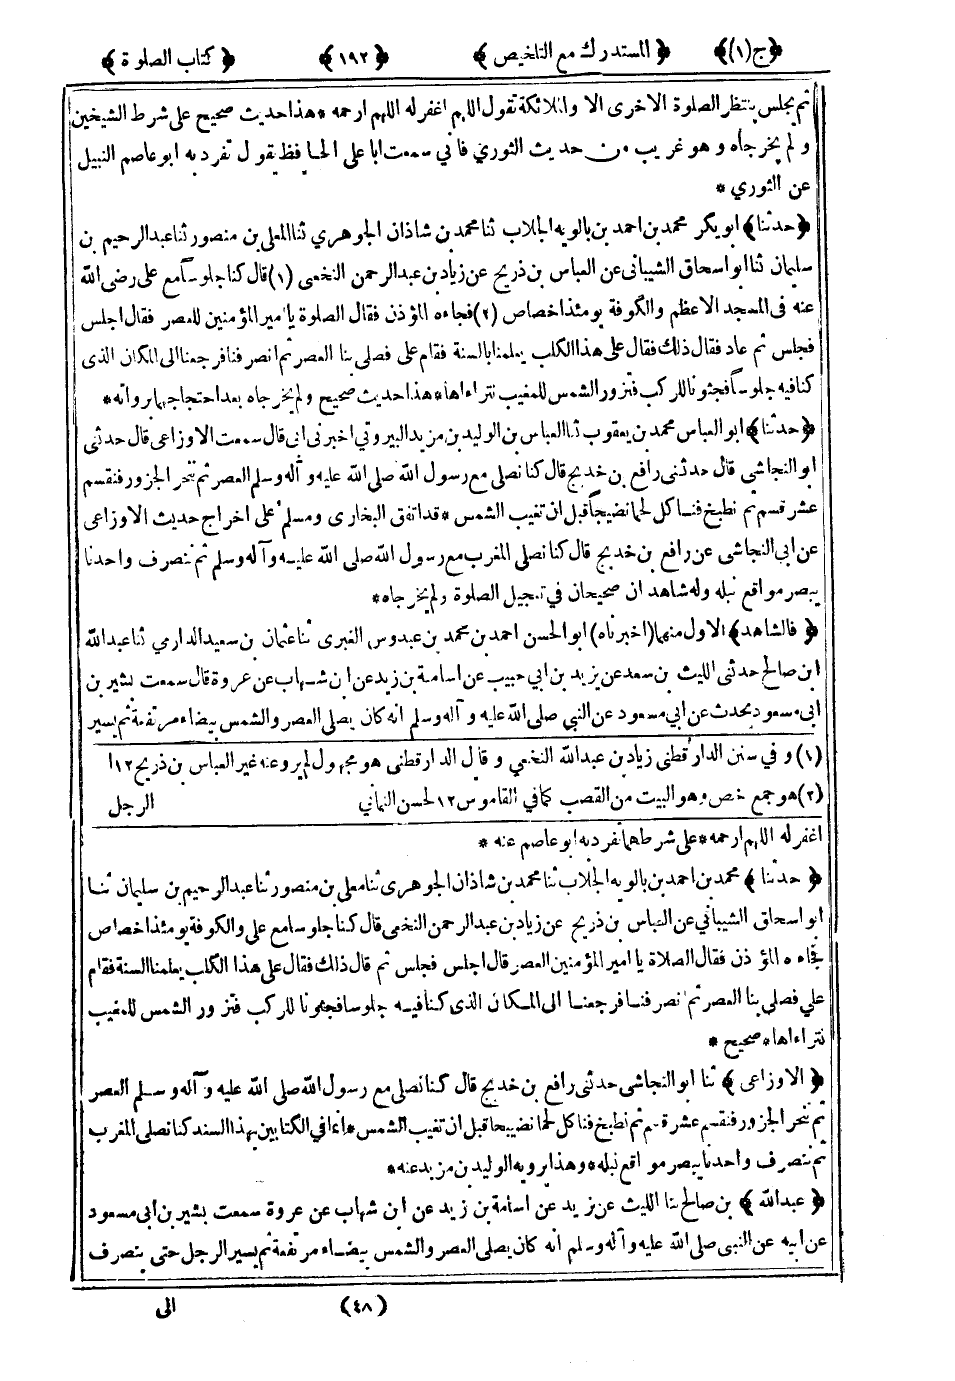 ﴿ج(١)﴾ ﴿المستدرك مع التلخيص﴾ ﴿١٩٢﴾ ﴿كتاب الصلوة﴾
ثم يجلس ينتظر الصلوة الاخرى الا والملائكة تقول اللهم اغفر له اللهم ارحمه * هذا حديث صحيح على شرط الشيخين
ولم يخرجاه وهو غريب من حديث الثوري فاني سمعت ابا على الحافظ يقول تفرد به ابو عاصم النبيل
عن الثوري *
﴿حدثنا﴾ ابو بكر محمد بن احمد بن بالويه الجلاب ثنا محمد بن شاذان الجوهري ثنا المعلى بن منصور ثنا عبد الرحيم بن
سليمان ثنا ابو اسحاق الشيباني عن العباس بن ذريح عن زياد بن عبد الرحمن النخعى (١) قال كنا جلوسا مع على رضى الله
عنه فى المسجد الاعظم والكوفة يومئذ اخصاص (٢) فجاءه المؤذن فقال الصلوة يا امير المؤمنين للعصر فقال اجلس
فجلس ثم عاد فقال ذلك فقال على هذا الكلب يعلمنا بالسنة فقام على فصلى بنا العصر ثم انصرفنا فرجعنا الى المكان الذى
كنا فيه جلوسا فجثونا للركب فتزور الشمس للمغيب نتراءاها * هذا حديث صحيح ولم يخرجاه بعد احتجاجهما برواته *
﴿حدثنا﴾ ابو العباس محمد بن يعقوب ثنا العباس بن الوليد بن مزيد البيروتي اخبرنى ابى قال سمعت الاوزاعى قال حدثنى
ابو النجاشى قال حدثنى رافع بن خديج قال كنا نصلى مع رسول الله صلى الله عليه وآله وسلم العصر ثم ننحر الجزور فنقسم
عشر قسم ثم نطبخ فنأكل لحما نضيجا قبل ان تغيب الشمس * قد اتفق البخارى ومسلم على اخراج حديث الاوزاعى
عن ابى النجاشى عن رافع بن خديج قال كنا نصلى المغرب مع رسول الله صلى الله عليه وآله وسلم ثم ننصرف واحدنا
يبصر مواقع نبله وله شاهدان صحيحان في تعجيل الصلوة ولم يخرجاه *
﴿فالشاهد﴾ الاول منهما (اخبرناه) ابو الحسن احمد بن محمد بن عبدوس العنبرى ثنا عثمان بن سعيد الدارمي ثنا عبد الله
ابن صالح حدثنى الليث بن سعد عن يزيد بن ابي حبيب عن اسامة بن زيد عن ابن شهاب عن عروة قال سمعت بشير بن
ابى مسعود يحدث عن ابي مسعود عن النبي صلى الله عليه وآله وسلم انه كان يصلى العصر والشمس بيضاء مرتفعة ثم يسير
(١) وفي سنن الدارقطنى زياد بن عبد الله النخعي وقال الدارقطنى هو مجهول لم يرو عنه غير العباس بن ذريح ١٢ ا
(٢) هو جمع خص وهو البيت من القصب كما في القاموس ١٢ الحسن النعماني الرجل
اغفر له اللهم ارحمه * على شرطهما تفرد به ابو عاصم عنه *
﴿حدثنا﴾ محمد بن احمد بن بالويه الجلاب ثنا محمد بن شاذان الجوهرى ثنا معلى بن منصور ثنا عبد الرحيم بن سليمان ثنا
ابو اسحاق الشيباني عن العباس بن ذريح عن زياد بن عبد الرحمن النخعى قال كنا جلوسا مع على والكوفة يومئذ اخصاص
فجاءه المؤذن فقال الصلاة يا امير المؤمنين العصر قال اجلس فجلس ثم قال ذلك فقال على هذا الكلب يعلمنا السنة فقام
علي فصلى بنا العصر ثم انصرفنا فرجعنا الى المكان الذى كنا فيه جلوسا فجثونا للركب فتزور الشمس للمغيب
نتراءاها * صحيح *
﴿الاوزاعى﴾ ثنا ابو النجاشى حدثنى رافع بن خديج قال كنا نصلى مع رسول الله صلى الله عليه وآله وسلم العصر
ثم ننحر الجزور فنقسم عشر قسم ثم نطبخ فنأكل لحما نضيجا قبل ان تغيب الشمس * انما في الكتابين بهذا السند كنا نصلى المغرب
ثم ننصرف واحدنا يبصر مواقع نبله * وهذا يرويه الوليد بن مزيد عنه *
﴿عبد الله﴾ بن صالح ثنا الليث عن يزيد عن اسامة بن زيد عن ابن شهاب عن عروة سمعت بشير بن ابى مسعود
عن ابيه عن النبى صلى الله عليه وآله وسلم انه كان يصلى العصر والشمس بيضاء مرتفعة ثم يسير الرجل حتى ينصرف
(٤٨) الى